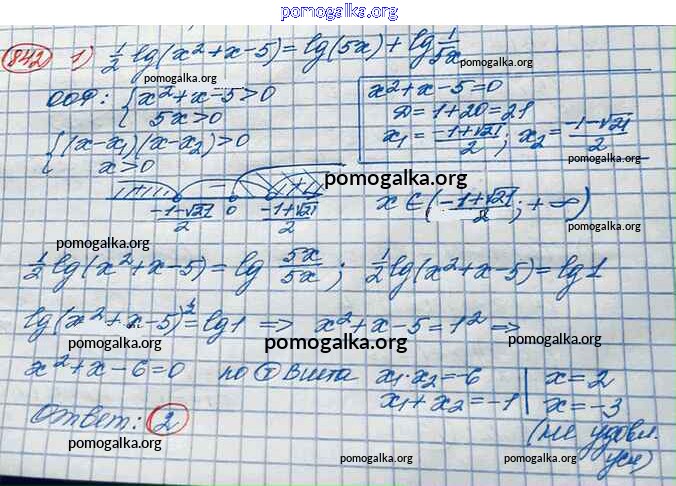 pomogalka.org
842 1) ½ lg(x²+x-5) = lg(5x) + lg 1/5x
pomogalka.org
pomogalka.org
ООФ: { x²+x-5>0
5x>0
x²+x-5=0
D=1+20=21
x₁ = (-1+√21)/2 ; x₂ = (-1-√21)/2
pomogalka.org
{ (x-x₁)(x-x₂)>0
x>0
+ - +
pomogalka.org
(-1-√21)/2 0 (-1+√21)/2
x ∈ ((-1+√21)/2 ; +∞)
pomogalka.org
pomogalka.org
½ lg(x²+x-5) = lg 5x/5x ; ½ lg(x²+x-5) = lg1
lg(x²+x-5)^½ = lg1 => x²+x-5=1² =>
pomogalka.org
pomogalka.org
pomogalka.org
x²+x-6=0 по Т Виета x₁·x₂=-6 | x=2
x₁+x₂=-1 | x=-3
pomogalka.org
(не удовл. усл)
Ответ: 2
pomogalka.org
pomogalka.org
pomogalka.org